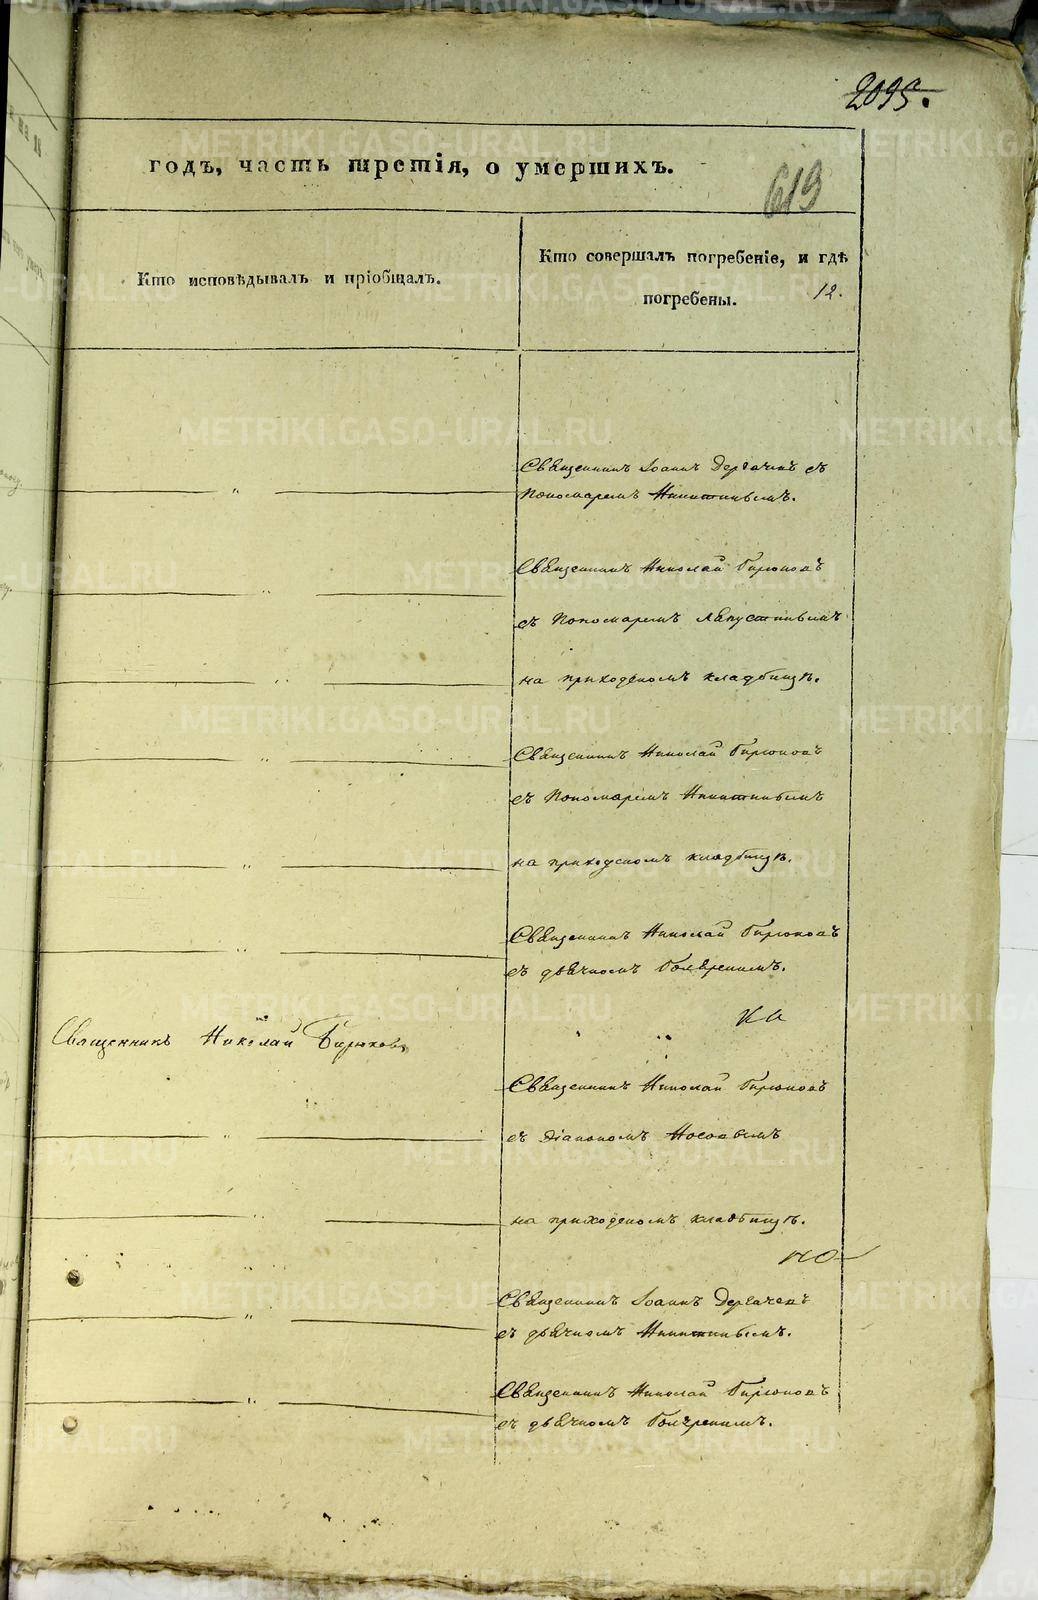 2095.
годъ, часть третія, о умершихъ.
619
Кто исповѣдывалъ и пріобщалъ.
Кто совершалъ погребеніе, и гдѣ
погребены.
12.
Священникъ Іоаннъ Дергачевъ съ
Пономаремъ Никитинымъ.
Священникъ Николай Бирюковъ
съ Пономаремъ
на приходскомъ кладбищѣ.
Священникъ Николай Бирюковъ
съ Пономаремъ Никитинымъ
на приходскомъ кладбищѣ.
Священникъ Николай Бирюковъ
съ дьячкомъ
Священникъ Николай Бирюковъ
Священникъ Николай Бирюковъ
съ Діакономъ Носовымъ
на приходскомъ кладбищѣ.
Священникъ Іоаннъ Дергачевъ
съ дьячкомъ Никитинымъ.
Священникъ Николай Бирюковъ
съ дьячкомъ
METRIKI.GASO-URAL.RU